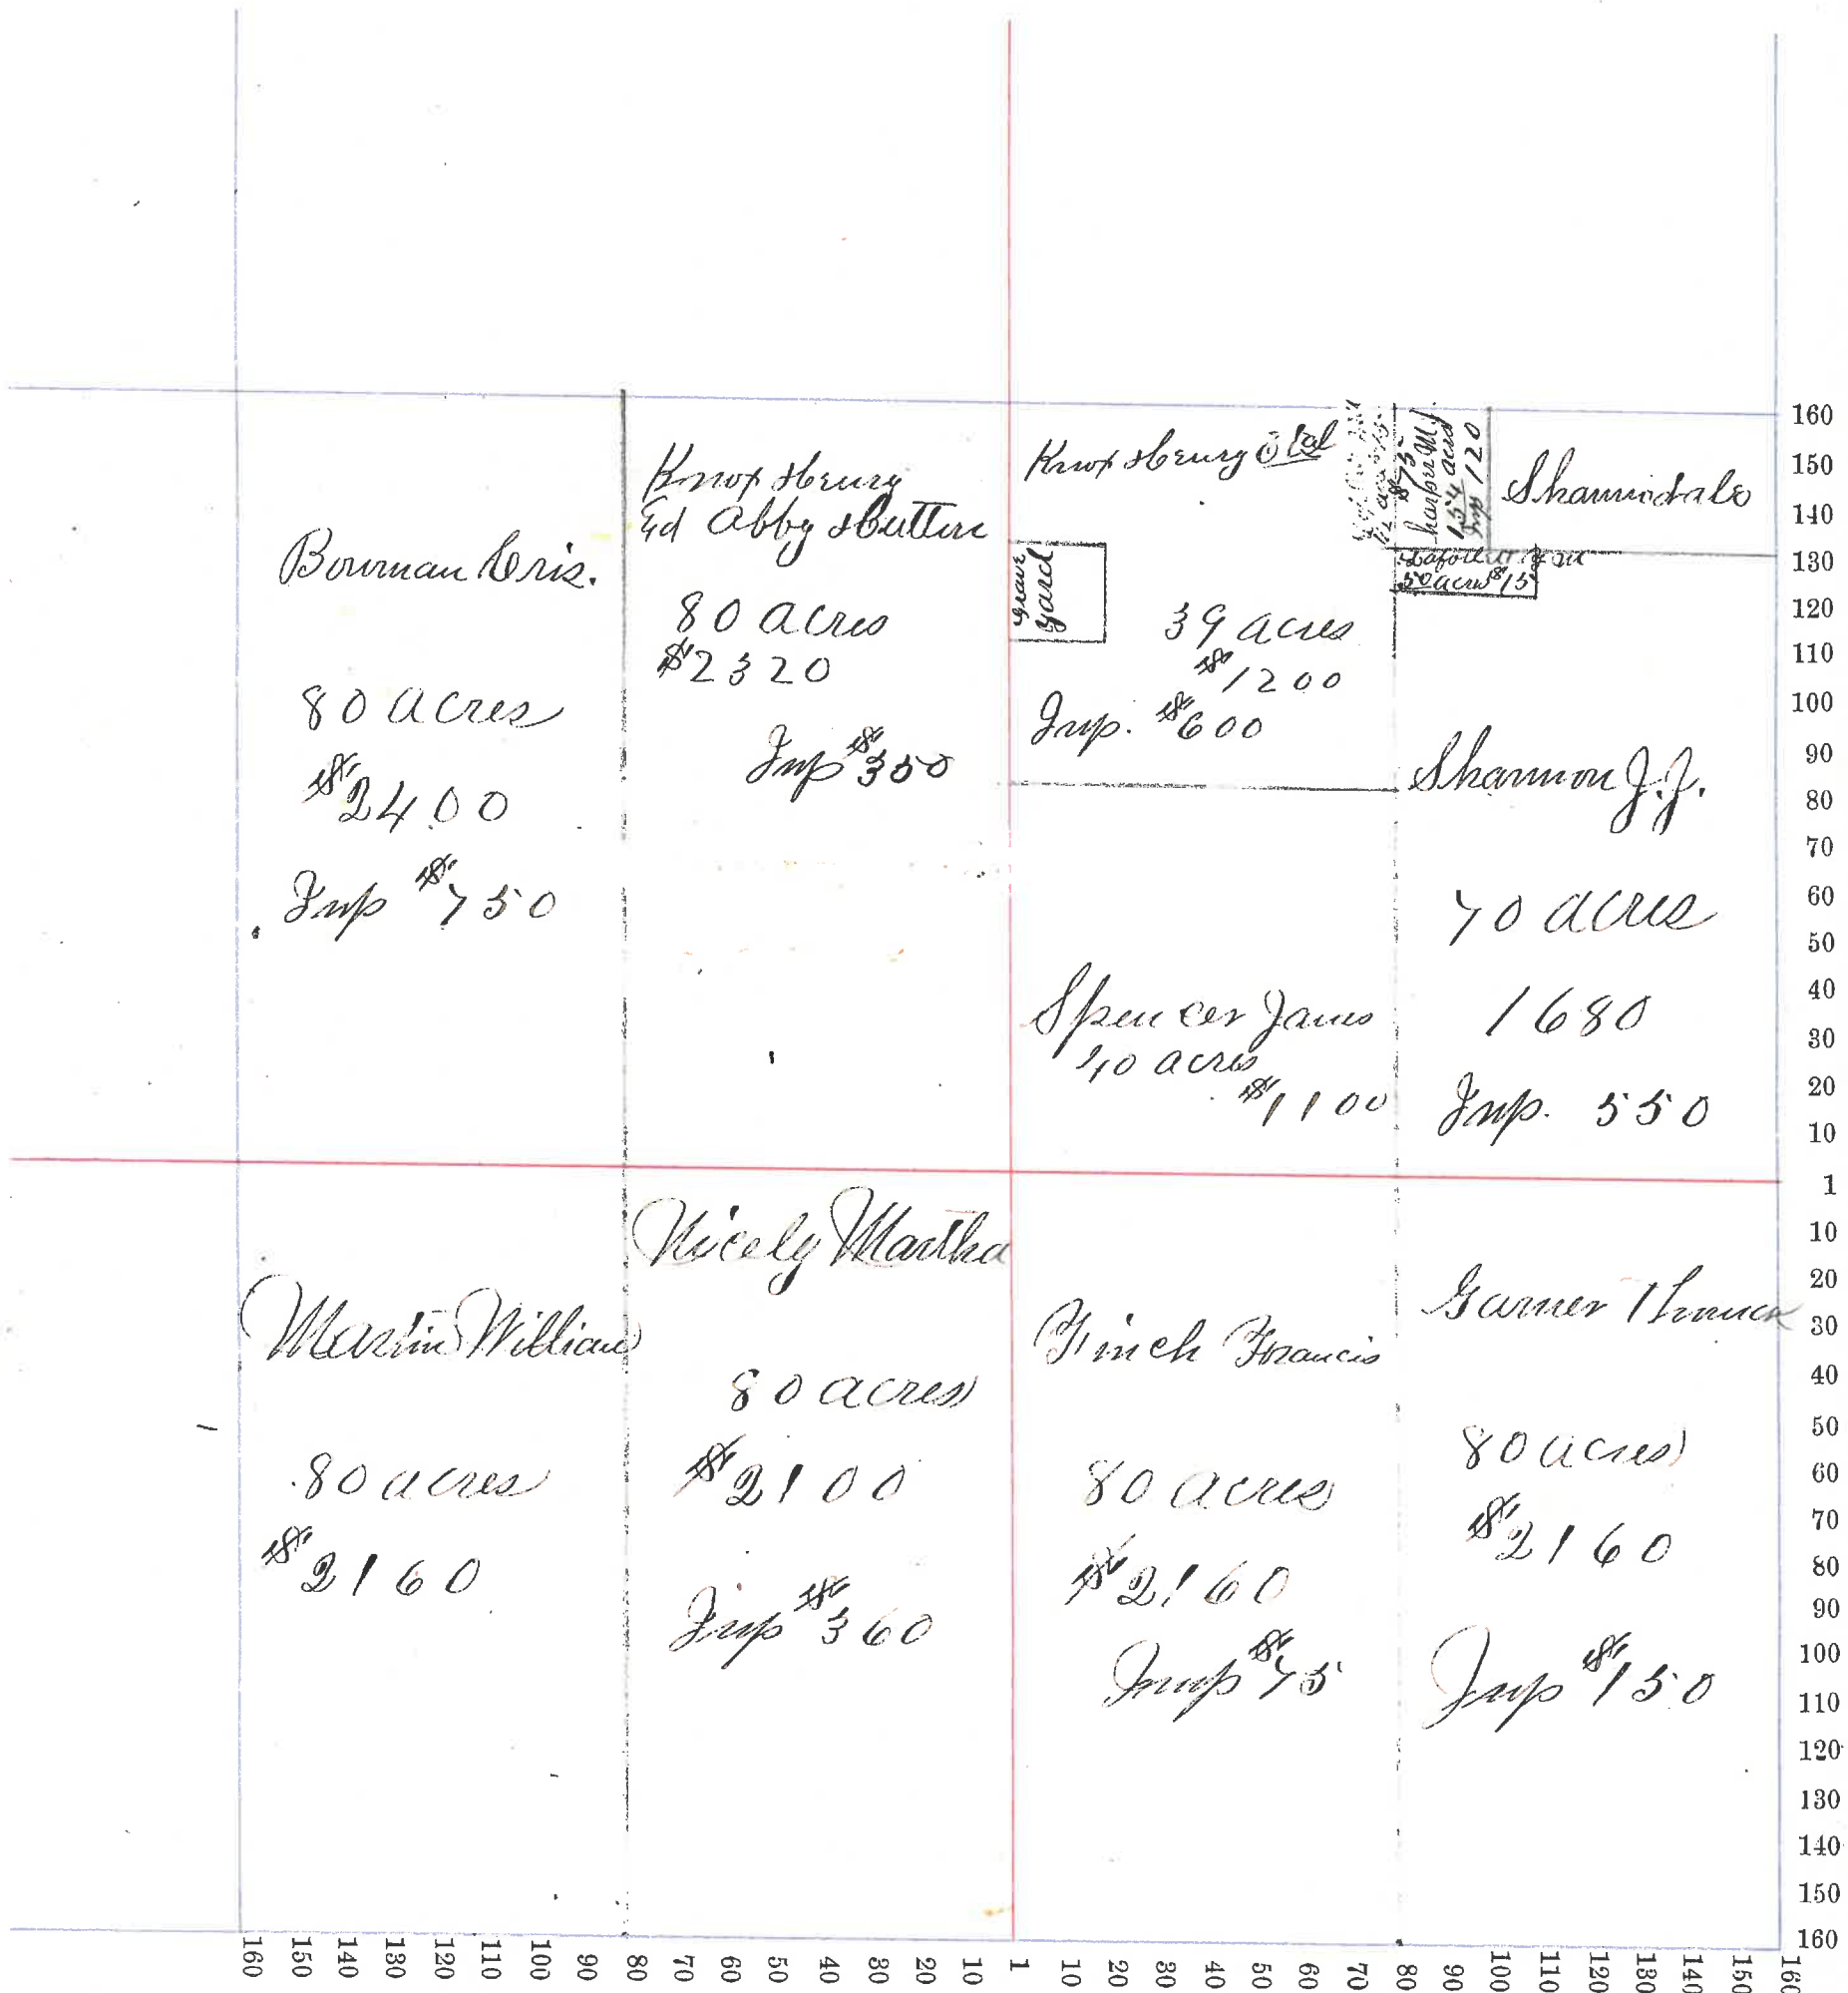 Bowman Cris.
80 acres
$2400
Imp $750
Knox Henry
Ed Abby Hutton
80 acres
$2320
Imp $350
Knox Henry
Grave
Yard
39 acres
$1200
Imp. $600
$75
Harper M J
Imp 120
Shannondale
50 acres $15
Shannon J.J.
70 acres
1680
Imp. 550
Spencer James
40 acres
$1100
Martin William
80 acres
$2160
Nicely Martha
80 acres
$2100
Imp $360
Finch Francis
80 acres
$2160
Imp $75
Garner
80 acres
$2160
Imp $150
160
150
140
130
120
110
100
90
80
70
60
50
40
30
20
10
1
10
20
30
40
50
60
70
80
90
100
110
120
130
140
150
160
160 150 140 130 120 110 100 90 80 70 60 50 40 30 20 10 1 10 20 30 40 50 60 70 80 90 100 110 120 130 140 150 160